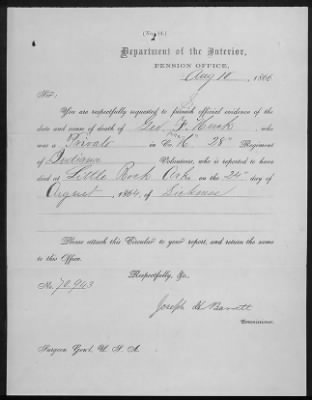 (No. 14.)
2
Department of the Interior,
PENSION OFFICE,
Aug 10, 1866
Sir:
You are respectfully requested to furnish official evidence of the
date and cause of death of Geo. F. , who
was a Private in Co. "K" 28" Regiment
of Indiana Volunteers, who is reported to have
died at Little Rock Arks on the 24" day of
August, 1864, of Sickness
Please attach this Circular to your report, and return the same
to this Office.
Respectfully, &c.,
No. 70,943
Joseph H Barrett
Commissioner.
Surgeon Genl. U. S. A.